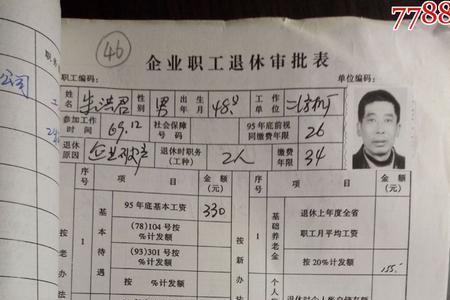 7788
46
企业职工退休审批表
职工编码: 单位编码:
公司
姓名 朱洪君 性别 男 出生年月 48.9 工作单位
参加工作时间 69.12 社会保障号码 95年底前视同缴费年限 26
退休原因 企业破产 退休时职务(工种) 工人 缴费年限 34
序号 项目 金额(元) 序号 项目 金额(元)
按老办法 1 基本待遇 95年底基本工资 330
(78)104号按 %计发额
(93)301号按 %计发额
按新办法 1 基础养老金 退休上年度全省职工月平均工资
按20%计发额 155.